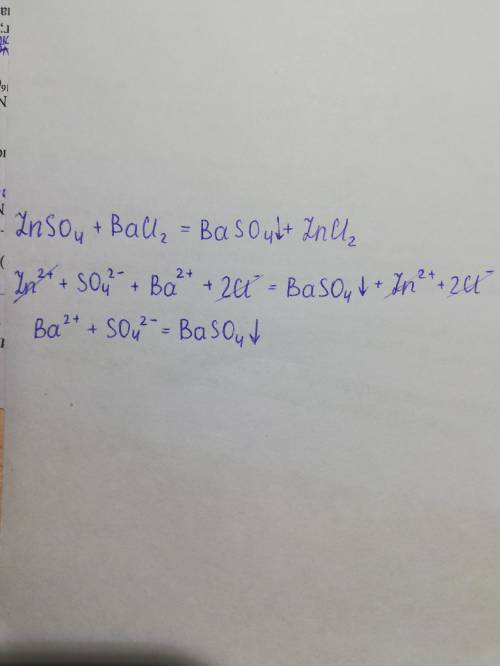 ZnSO₄ + BaCl₂ = BaSO₄↓ + ZnCl₂
Zn²⁺ + SO₄²⁻ + Ba²⁺ + 2Cl⁻ = BaSO₄↓ + Zn²⁺ + 2Cl⁻
Ba²⁺ + SO₄²⁻ = BaSO₄↓